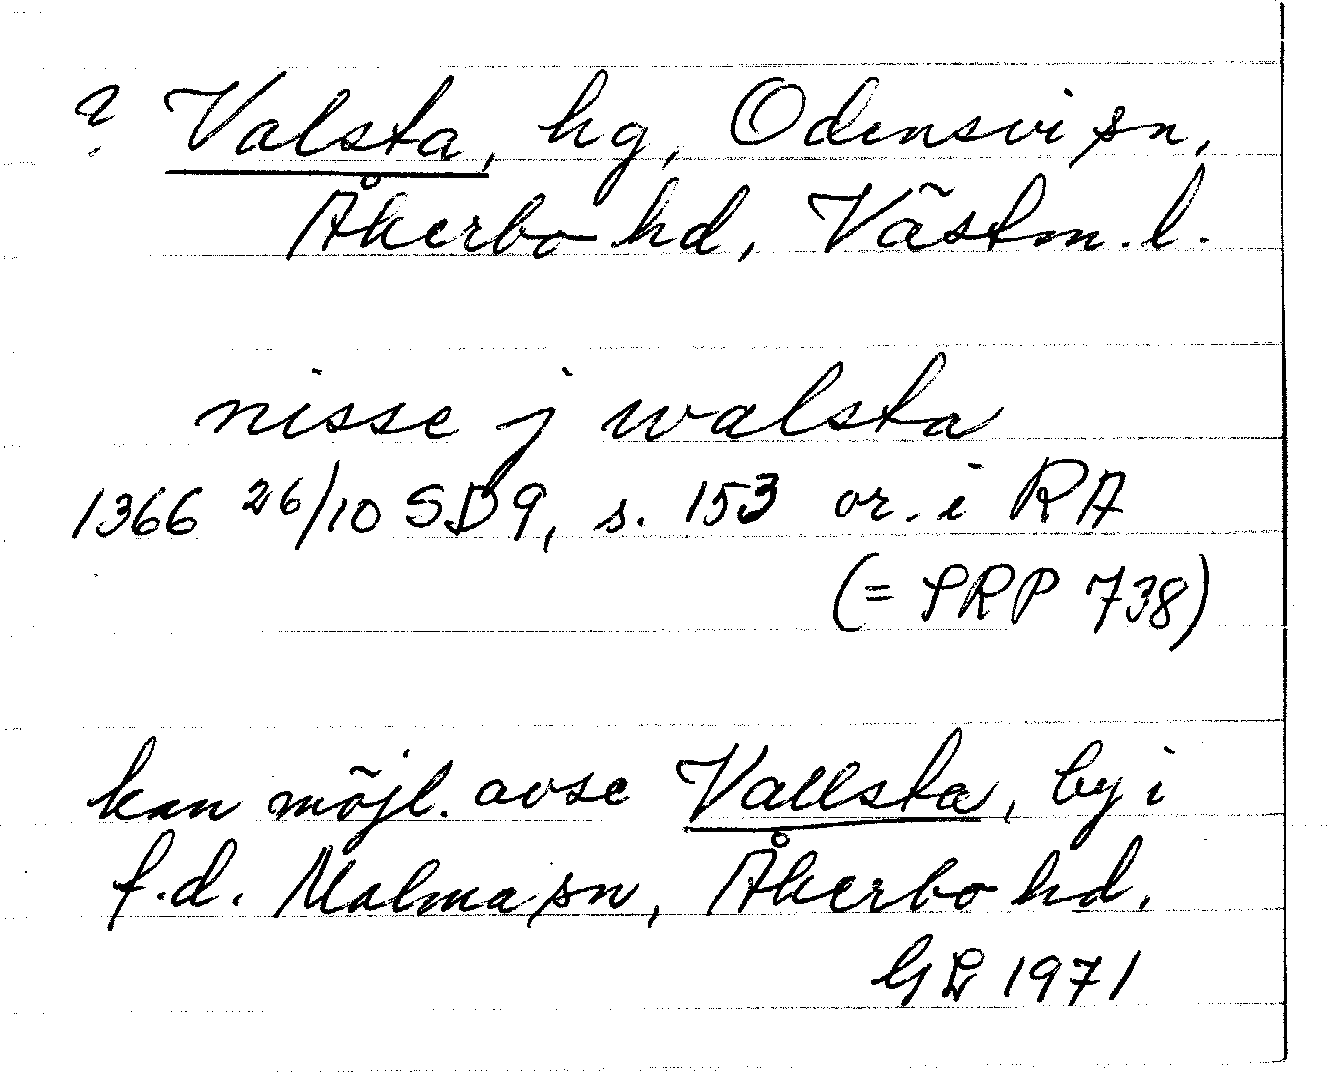 ? Valsta, hg, Odensvi sn,
Åkerbo hd, Västm. l.
nisse j walsta
1366 26/10 SD 9, s. 153 or. i RA
(= SRP 738)
kan möjl. avse Vallsta, by i
f.d. Malma sn, Åkerbo hd.
GL 1971